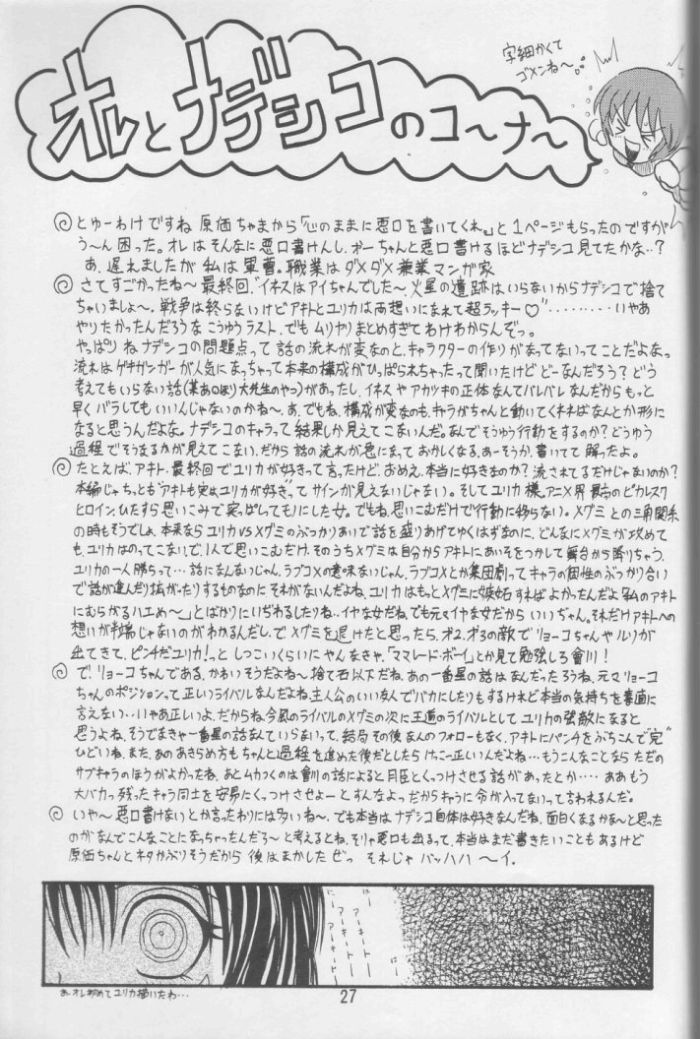 字細かくて
ゴメンね〜。
オレとナデシコのコ〜ナ〜
とゆーわけですね 原価ちゃまから「心のままに悪口を書いてくれ。」と1ページもらったのですが
う〜ん困った。オレはそんなに悪口書けんし、かーちゃんと悪口書けるほどナデシコ見てたかな‥?
あ、遅れましたが 私は軍曹。職業はダメダメ兼業マンガ家
さてすごかったね〜最終回、"イネスはアイちゃんでした〜火星の遺跡はいらないからナデシコで捨て
ちゃいましょ〜、戦争は終らないけどアキトとユリカは両想いになれて超ラッキー♡"‥‥‥‥いやあ
やりたかったんだろうな こうゆうラスト、でもムリヤリまとめすぎてわけわからんぞっ。
やっぱりねナデシコの問題点って話の流れが変なのと、キャラクターの作りがなってないってことだよなっ
流れはゲキガンガーが人気になっちゃって本来の構成がひっぱられちゃったって聞いたけどどーなんだろう?どう
考えてもいらない話(某あ○ほり大先生のやつ)があったし、イネスやアカツキの正体なんてバレバレなんだからもっと
早くバラしてもいいんじゃないのかね〜あ、でもね、構成が変なのも、キャラがちゃんと動いてくれればなんとか形に
なると思うんだよな。ナデシコのキャラって結果しか見えてこないんだ。なんでそうゆう行動をするのか?どうゆう
過程でそうなるかが見えてこない、だから話の流れが悪になっておかしくなる、あーそうか、書いてて解ったよ。
たとえば、アキト、最終回でユリカが好きって言ったけど、おめえ、本当に好きなのか?流されてるだけじゃないのか?
本編じゃちっとも"アキトも実はユリカが好き"ってサインが見えないじゃない。そしてユリカ様、アニメ界最高のピカレスク
ヒロイン、ひたすら思いこみで突っぱしてもにした女。でもね、思いこむだけで行動に移らない。メグミとの三角関係
の時もそうでしょ、本来ならユリカVSメグミのぶっかりあいで話を盛りあげてゆくはずなのに、どんなにメグミが攻めて
も、ユリカはのってこないで、1人で思いこむだけ、そのうちメグミは自分からアキトにあいそをつかして舞台から降りちゃう、
ユリカの一人勝ちって…話になんないじゃん、ラブコメの意味ないじゃん。ラブコメとか集団劇ってキャラの個性のぶっかり合い
で話が進んだり拡がったりするものなのに それがないんだよね、ユリカはもっとメグミに嫉妬すればよかったんだよ「私のアキト
にむらがるハエめ〜」とばかりにいぢわるしたりね‥イヤな女だね、でも元々イヤな女だからいいぢゃん。それだけアキトへの
想いが半端じゃないのがわかるんだし、でメグミを退けたと思ったら、オ2、オ3の敵でリョーコちゃんやルリが
出てきて、ピンチだユリカ!っとしつこいくらいにやんなきゃ、「ママレード・ボーイ」とか見て勉強しろ會川!
で、リョーコちゃんである、かわいそうだよね〜捨て石以下だね、あの一番星の話はなんだったろうね、元々リョーコ
ちゃんのポジションって正しいライバルなんだよね、主人公のいいなんでバカにしたりもするけれど本当の気持ちを素直に
言えない…いやあ正しいよ、だからね、今風のライバルのメグミの次に王道のライバルとして ユリカの強敵になると
思うよね、そうでまきゃ一番星の話なんていらないって、結局その後なんのフォローもなく、アキトにパンチをぶちこんで"完"
ひどいね、また、あのあきらめ方もちゃんと過程を進めた後だとしたら けっこー正しいんだよね…もうこんなことなら ただの
サブキャラのほうがよかったね、あとムカつくのは會川の話によると月臣とくっつけさせる話があったとか…ああもう
大バカっ残ったキャラ同士を安易にくっつけさせよーとすんなよっだからキャラに命が入ってないって言われるんだ。
いや〜悪口書けないとか言ったわりには多いね〜、でも本当はナデシコ自体は好きなんだね、面白くなるかな〜と思った
のがなんでこんなことになっちゃったんだろ〜と考えるとね、そりゃ悪口も出るって、本当はまだ書きたいこともあるけど
原価ちゃんとネタかぶりそうだから 後はまかしたぜっ それじゃ バッハハ〜イ.
はー
アーキトー
アーキトー
に‥
アーキトー
あ、オレ初めてユリカ描いたわ…
27